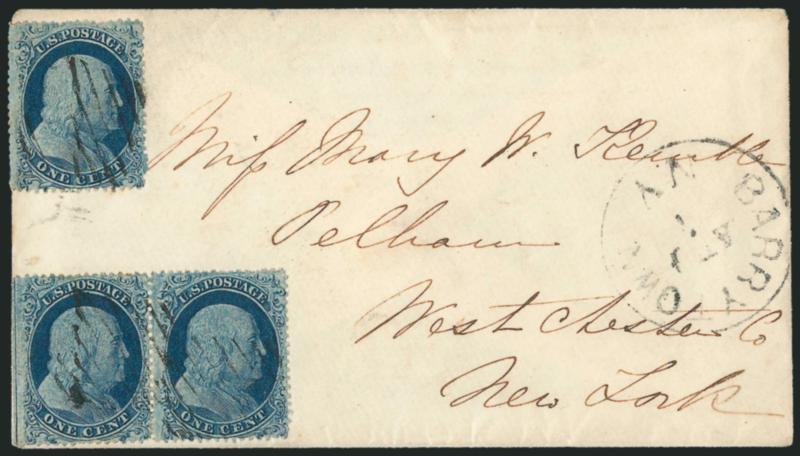 U.S. POSTAGE
ONE CENT
Miſs Mary W.
Pelham
West Chester Co
New York
BARRYTOWN
N.Y
U.S. POSTAGE
ONE CENT
U.S. POSTAGE
ONE CENT